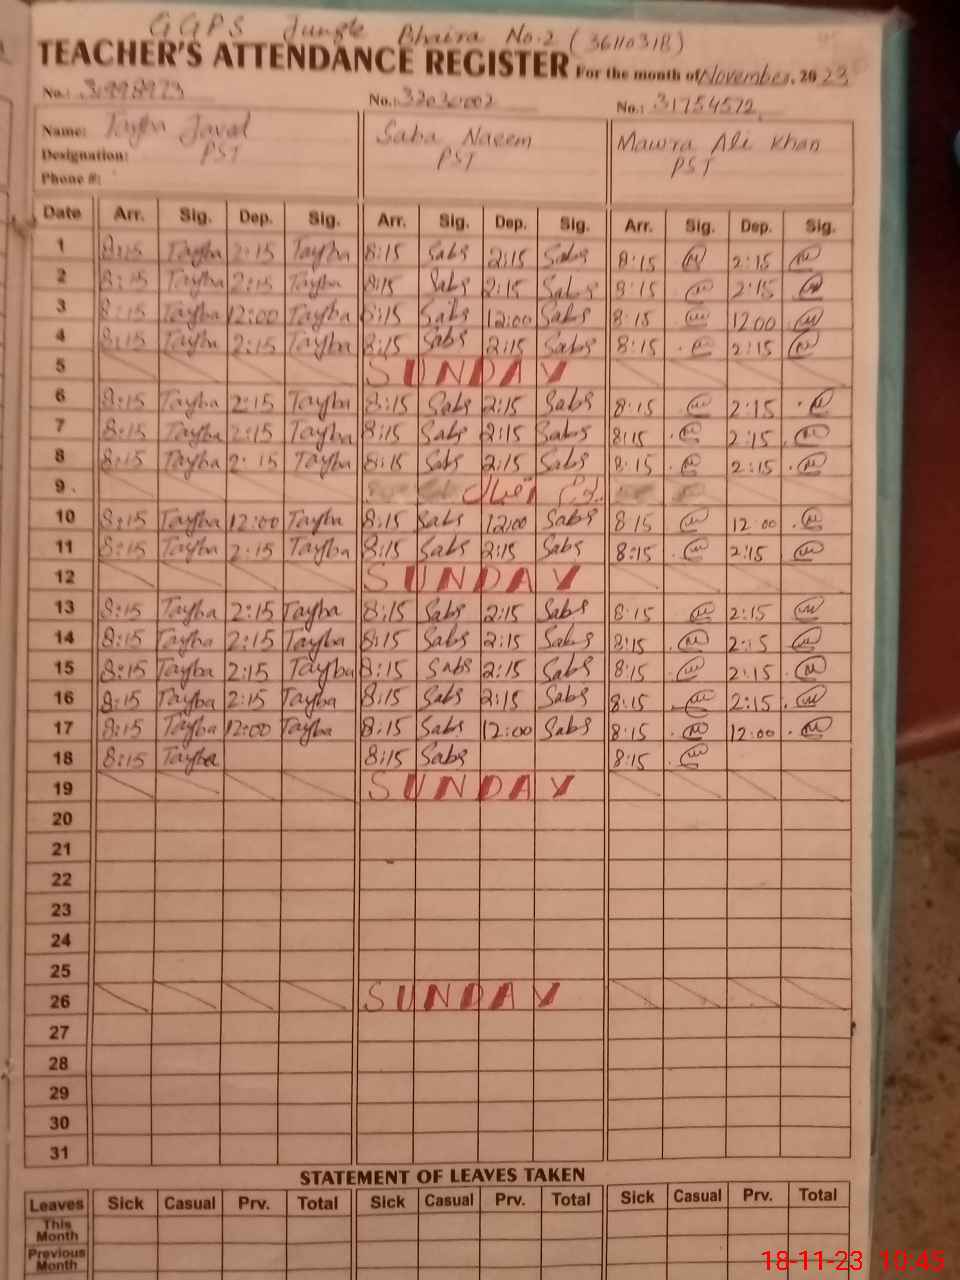 GGPS Jungle Bhaira No.2 (36110318)
TEACHER'S ATTENDANCE REGISTER For the month of November. 2023
No.: 31998973 No.: 32030002 No.: 31754572
Name: Tayba Javed Saba Naeem Mawra Ali Khan
Designation: PST PST PST
Phone #:
Date Arr. Sig. Dep. Sig. Arr. Sig. Dep. Sig. Arr. Sig. Dep. Sig.
1 8:15 Tayba 2:15 Tayba 8:15 Saba 2:15 Saba 8:15 2:15
2 8:15 Tayba 2:15 Tayba 8:15 Saba 2:15 Saba 8:15 2:15
3 8:15 Tayba 12:00 Tayba 8:15 Saba 12:00 Saba 8:15 12 00
4 8:15 Tayba 2:15 Tayba 8:15 Saba 2:15 Saba 8:15 2:15
5 SUNDAY
6 8:15 Tayba 2:15 Tayba 8:15 Saba 2:15 Saba 8:15 2:15
7 8:15 Tayba 2:15 Tayba 8:15 Saba 2:15 Saba 8:15 2:15
8 8:15 Tayba 2:15 Tayba 8:15 Saba 2:15 Saba 8:15 2:15
9. یوم اقبال
10 8:15 Tayba 12:00 Tayba 8:15 Saba 12:00 Saba 8:15 12:00
11 8:15 Tayba 2:15 Tayba 8:15 Saba 2:15 Saba 8:15 2:15
12 SUNDAY
13 8:15 Tayba 2:15 Tayba 8:15 Saba 2:15 Saba 8:15 2:15
14 8:15 Tayba 2:15 Tayba 8:15 Saba 2:15 Saba 8:15 2:15
15 8:15 Tayba 2:15 Tayba 8:15 Saba 2:15 Saba 8:15 2:15
16 8:15 Tayba 2:15 Tayba 8:15 Saba 2:15 Saba 8:15 2:15
17 8:15 Tayba 12:00 Tayba 8:15 Saba 12:00 Saba 8:15 12:00
18 8:15 Tayba 8:15 Saba 8:15
19 SUNDAY
20
21
22
23
24
25
26 SUNDAY
27
28
29
30
31
STATEMENT OF LEAVES TAKEN
Leaves Sick Casual Prv. Total Sick Casual Prv. Total Sick Casual Prv. Total
This Month
Previous Month
18-11-23 10:45